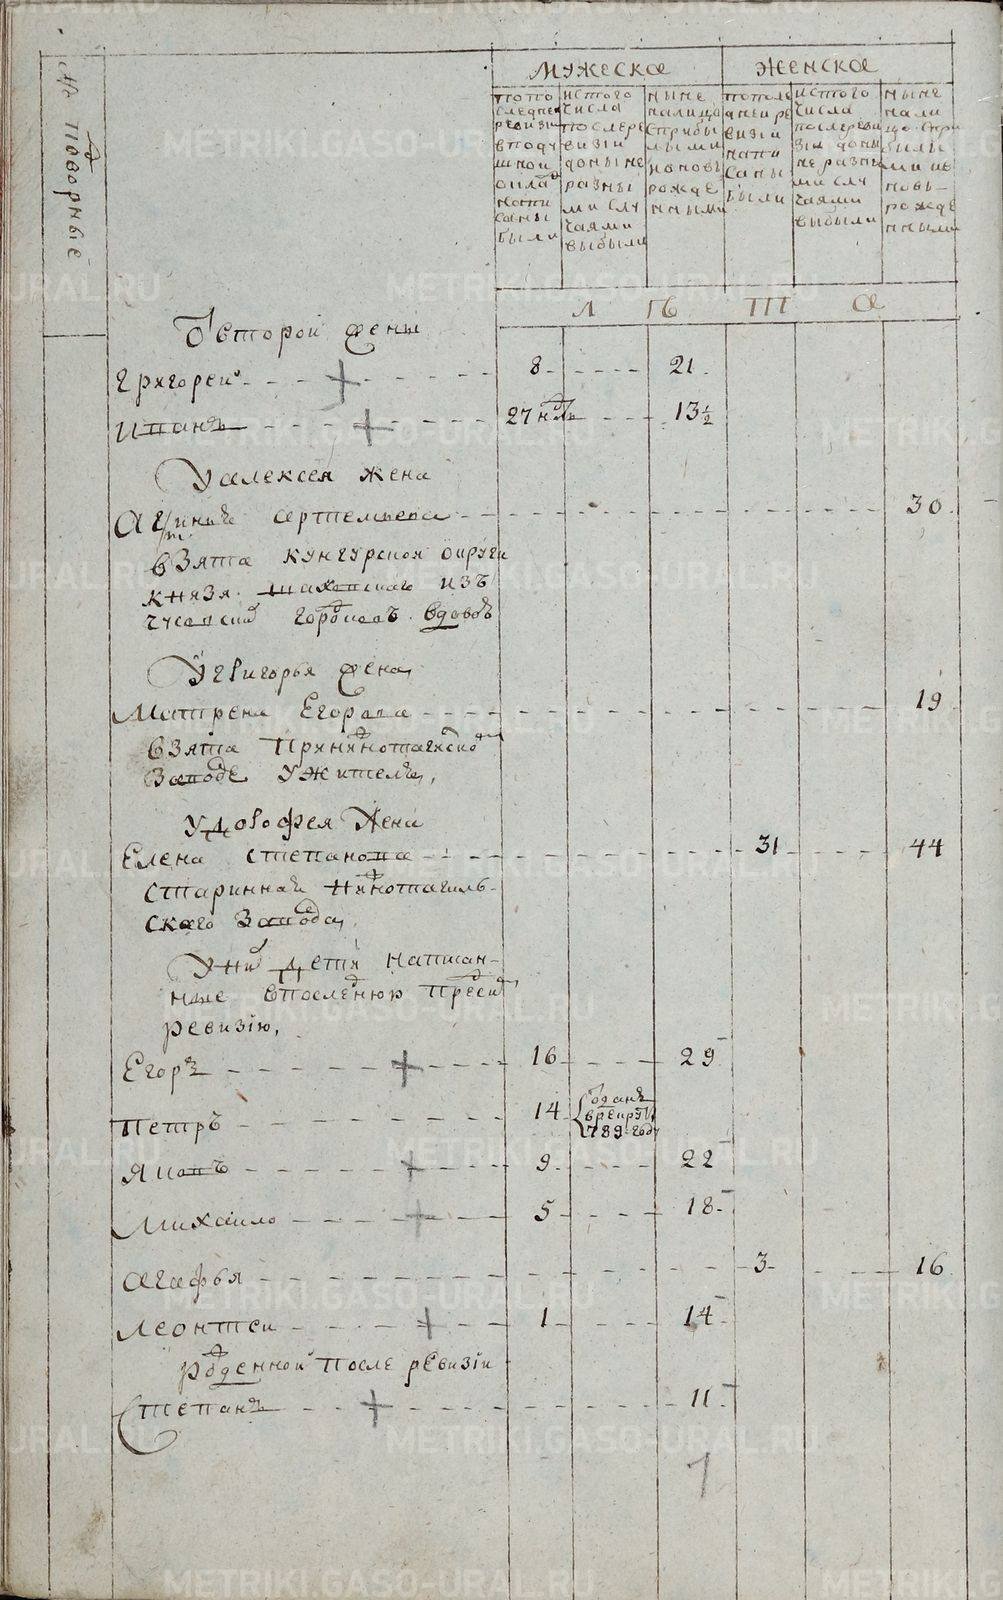 № подворные
Мужеска
Женска
попо
следней
ревизи
вподу
шной
оклад
напи
саны
были
истого
числа
послере
визiи
доныне
разны
ми слу
чаями
выбыли
ныне
налицо
сприбы
лыми
иновь
рожде
нными
попосле
дней ре
визiи
напи
саны
были
истого
числа
послереви
зiи доны
не разны
ми слу
чаями
выбыли
ныне
нали
цо спри
былы
ми ив
новь
рожде
нными
Л ѣ т а
Отвторой жены
Григореи 8 21
Иванъ 27 нѣдль 13½
У алексея жена
Агриныя артемьева 30
Взята кунгурской округи
князя шаховскаго изъ
чусовски городковъ вдовою
У григорья жена
Матрена Егорова 19
Взята принижнотагилско
Заводе ужителя,
У дорофея Жена
Елена степанова 31 44
стариннаго нижнотагиль-
скаго Завода,
У ни дети написан-
ные впоследнюю пред сим
ревизiю,
Егоръ 16 29
Петръ 14
Отданъ
врекруты
789 году
Яковъ 9 22
Михаило 5 18
агафья 3 16
леонтеи 1 14
рожденной после ревизiи
Степанъ 11
1
METRIKI.GASO-URAL.RU